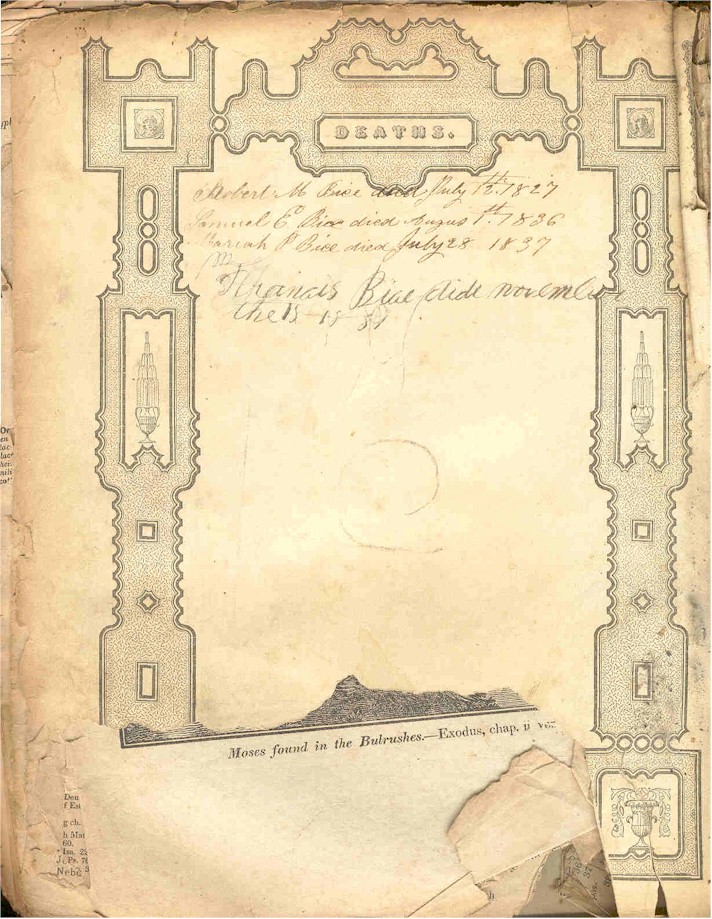 DEATHS.
Robert M Bice died July 13th. 1827
Samuel E Bice died Augus 1th. 1836
Mariah P Bice died July 28 1837
Francis Bice dide november
the 15
Moses found in the Bulrushes.—Exodus, chap. ii ver.
Deu
f Est
g ch.
h Mat
60.
Isa. 2
J. Ps. 78
Nebc